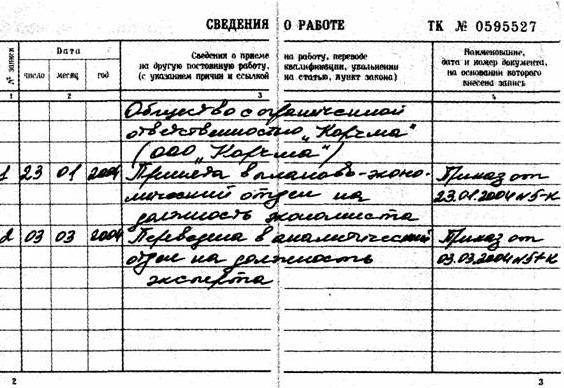 СВЕДЕНИЯ О РАБОТЕ ТК № 0595527
№ записи
Дата
число месяц год
Сведения о приеме на работу, переводе
на другую постоянную работу, квалификации, увольнении
(с указанием причин и ссылкой на статью, пункт закона)
Наименование,
дата и номер документа,
на основании которого
внесена запись
1 2 3 4
Общество с ограниченной
ответственностью „Корчма"
(ООО „Корчма")
1 23 01 2004 Принята в планово-эконо- Приказ от
мический отдел на 23.01.2004 №5-к
должность экономиста
2 03 03 2004 Переведена в аналитический Приказ от
отдел на должность 03.03.2004
эксперта
2 3